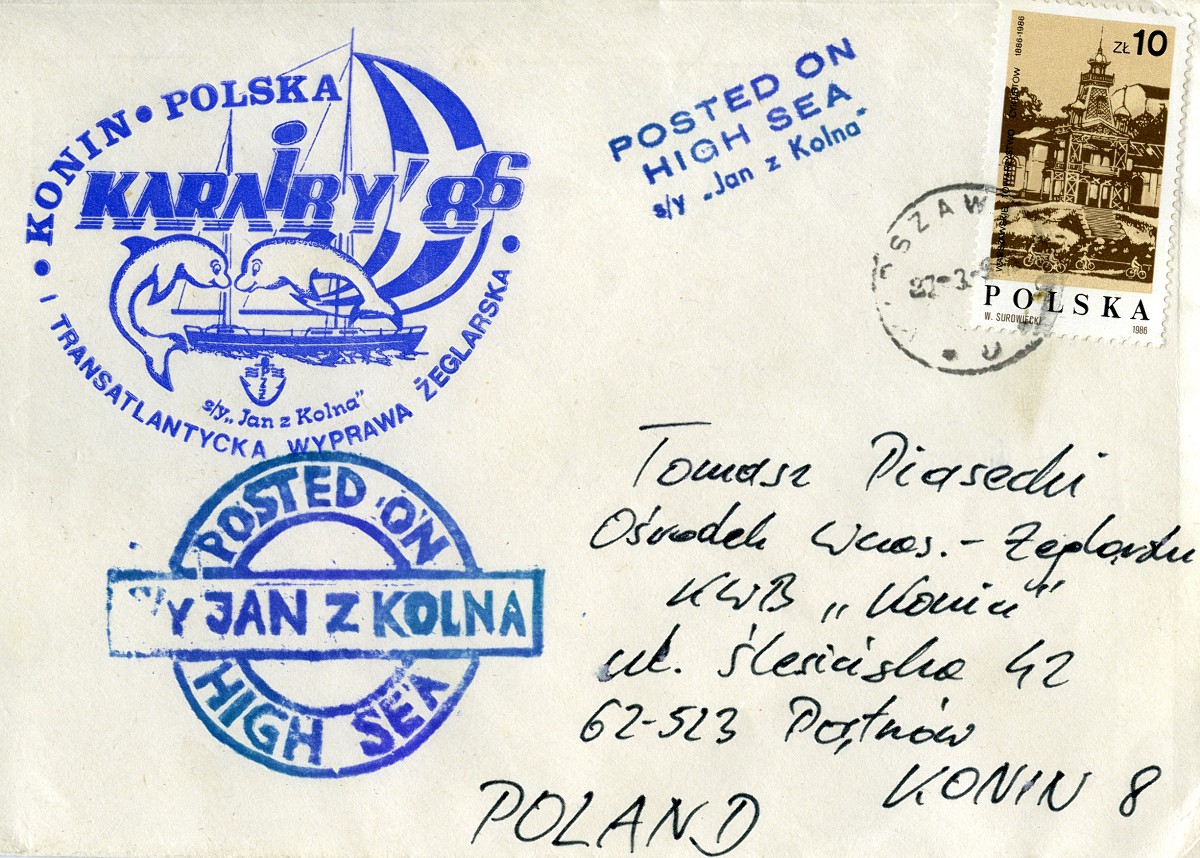 KONIN • POLSKA
KARAIBY '86
• I TRANSATLANTYCKA WYPRAWA ŻEGLARSKA •
PZŻ
s/y „Jan z Kolna"
POSTED ON
HIGH SEA
s/y „Jan z Kolna"
ZŁ 10
1886-1986
CYKLISTÓW
POLSKA
W. SUROWIECKI
1986
POSTED ON
S/Y JAN Z KOLNA
HIGH SEA
Tomasz Piasecki
Ośrodek Wczas.-Żeglarski
KWB „Konin"
ul. Ślesińska 42
62-523
KONIN 8
POLAND